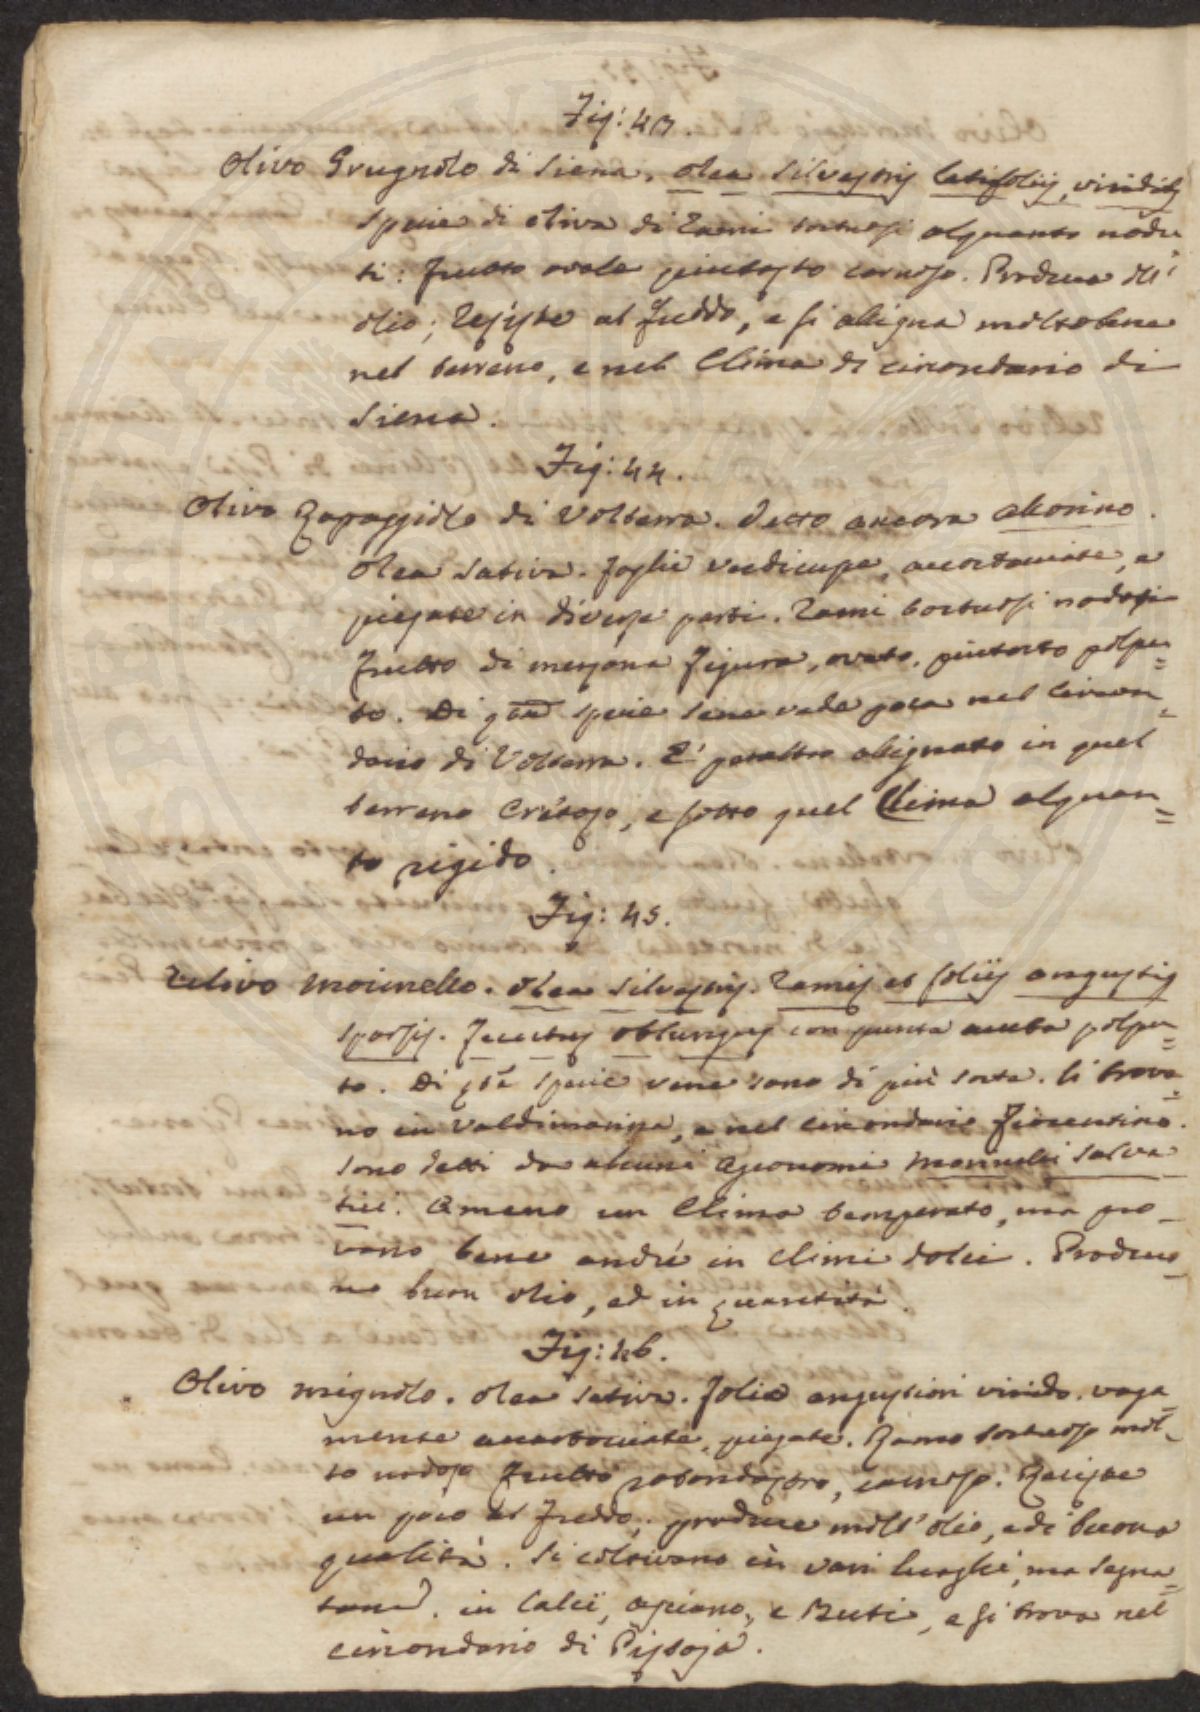 Fig: 43.
Olivo Grugnolo di Siena. Olea silvestris latifoliis, viridis
specie di oliva di Rami tortuosi alquanto nodu
ti: frutto ovale piutosto carnoso. Produce
olio; resiste al freddo, e si aligna molto bene
nel terreno, e nel Clima di circondario di
Siena.
Fig: 44.
Olivo Razaggiolo di Volterra. Detto ancora
Olea sativa. foglie verdicupe, accartociate, e
piegate in diverse parti. Rami tortuosi nodosi
frutto di mezzana figura, ovato, piutosto polpu=
to. Di qta specie sene vede poca nel circon=
dario di Volterra. E' peraltro alignato in quel
terreno Cretoso, e sotto quel Clima alquan=
to rigido.
Fig: 45.
Ulivo morinello. Olea silvestris. Ramis et foliis angustis
sparsis. fructus oblungus con punta acuta polpu=
to. Di qta specie vene sono di più sorta. Si trova=
no in Valdinievole, e nel circondario fiorentino.
sono detti da alcuni agronomi morinelli salva
tici. Amano un Clima temperato, ma pro=
vano bene anche in climi dolci. Produco=
no buon olio, ed in quantità.
Fig: 46.
Olivo mignolo. Olea sativa. folia angustiori virido. vaga=
mente accartociate, piegate. Ramo tortuoso mol=
to nodoso frutto rotondastro, carnoso. Resiste
un poco al freddo; produce molt' olio, e di buona
qualità. Si coltivano in vari luoghi, ma segna=
tamte. in Calci, e Buti, e si trova nel
circondario di Pistoja.